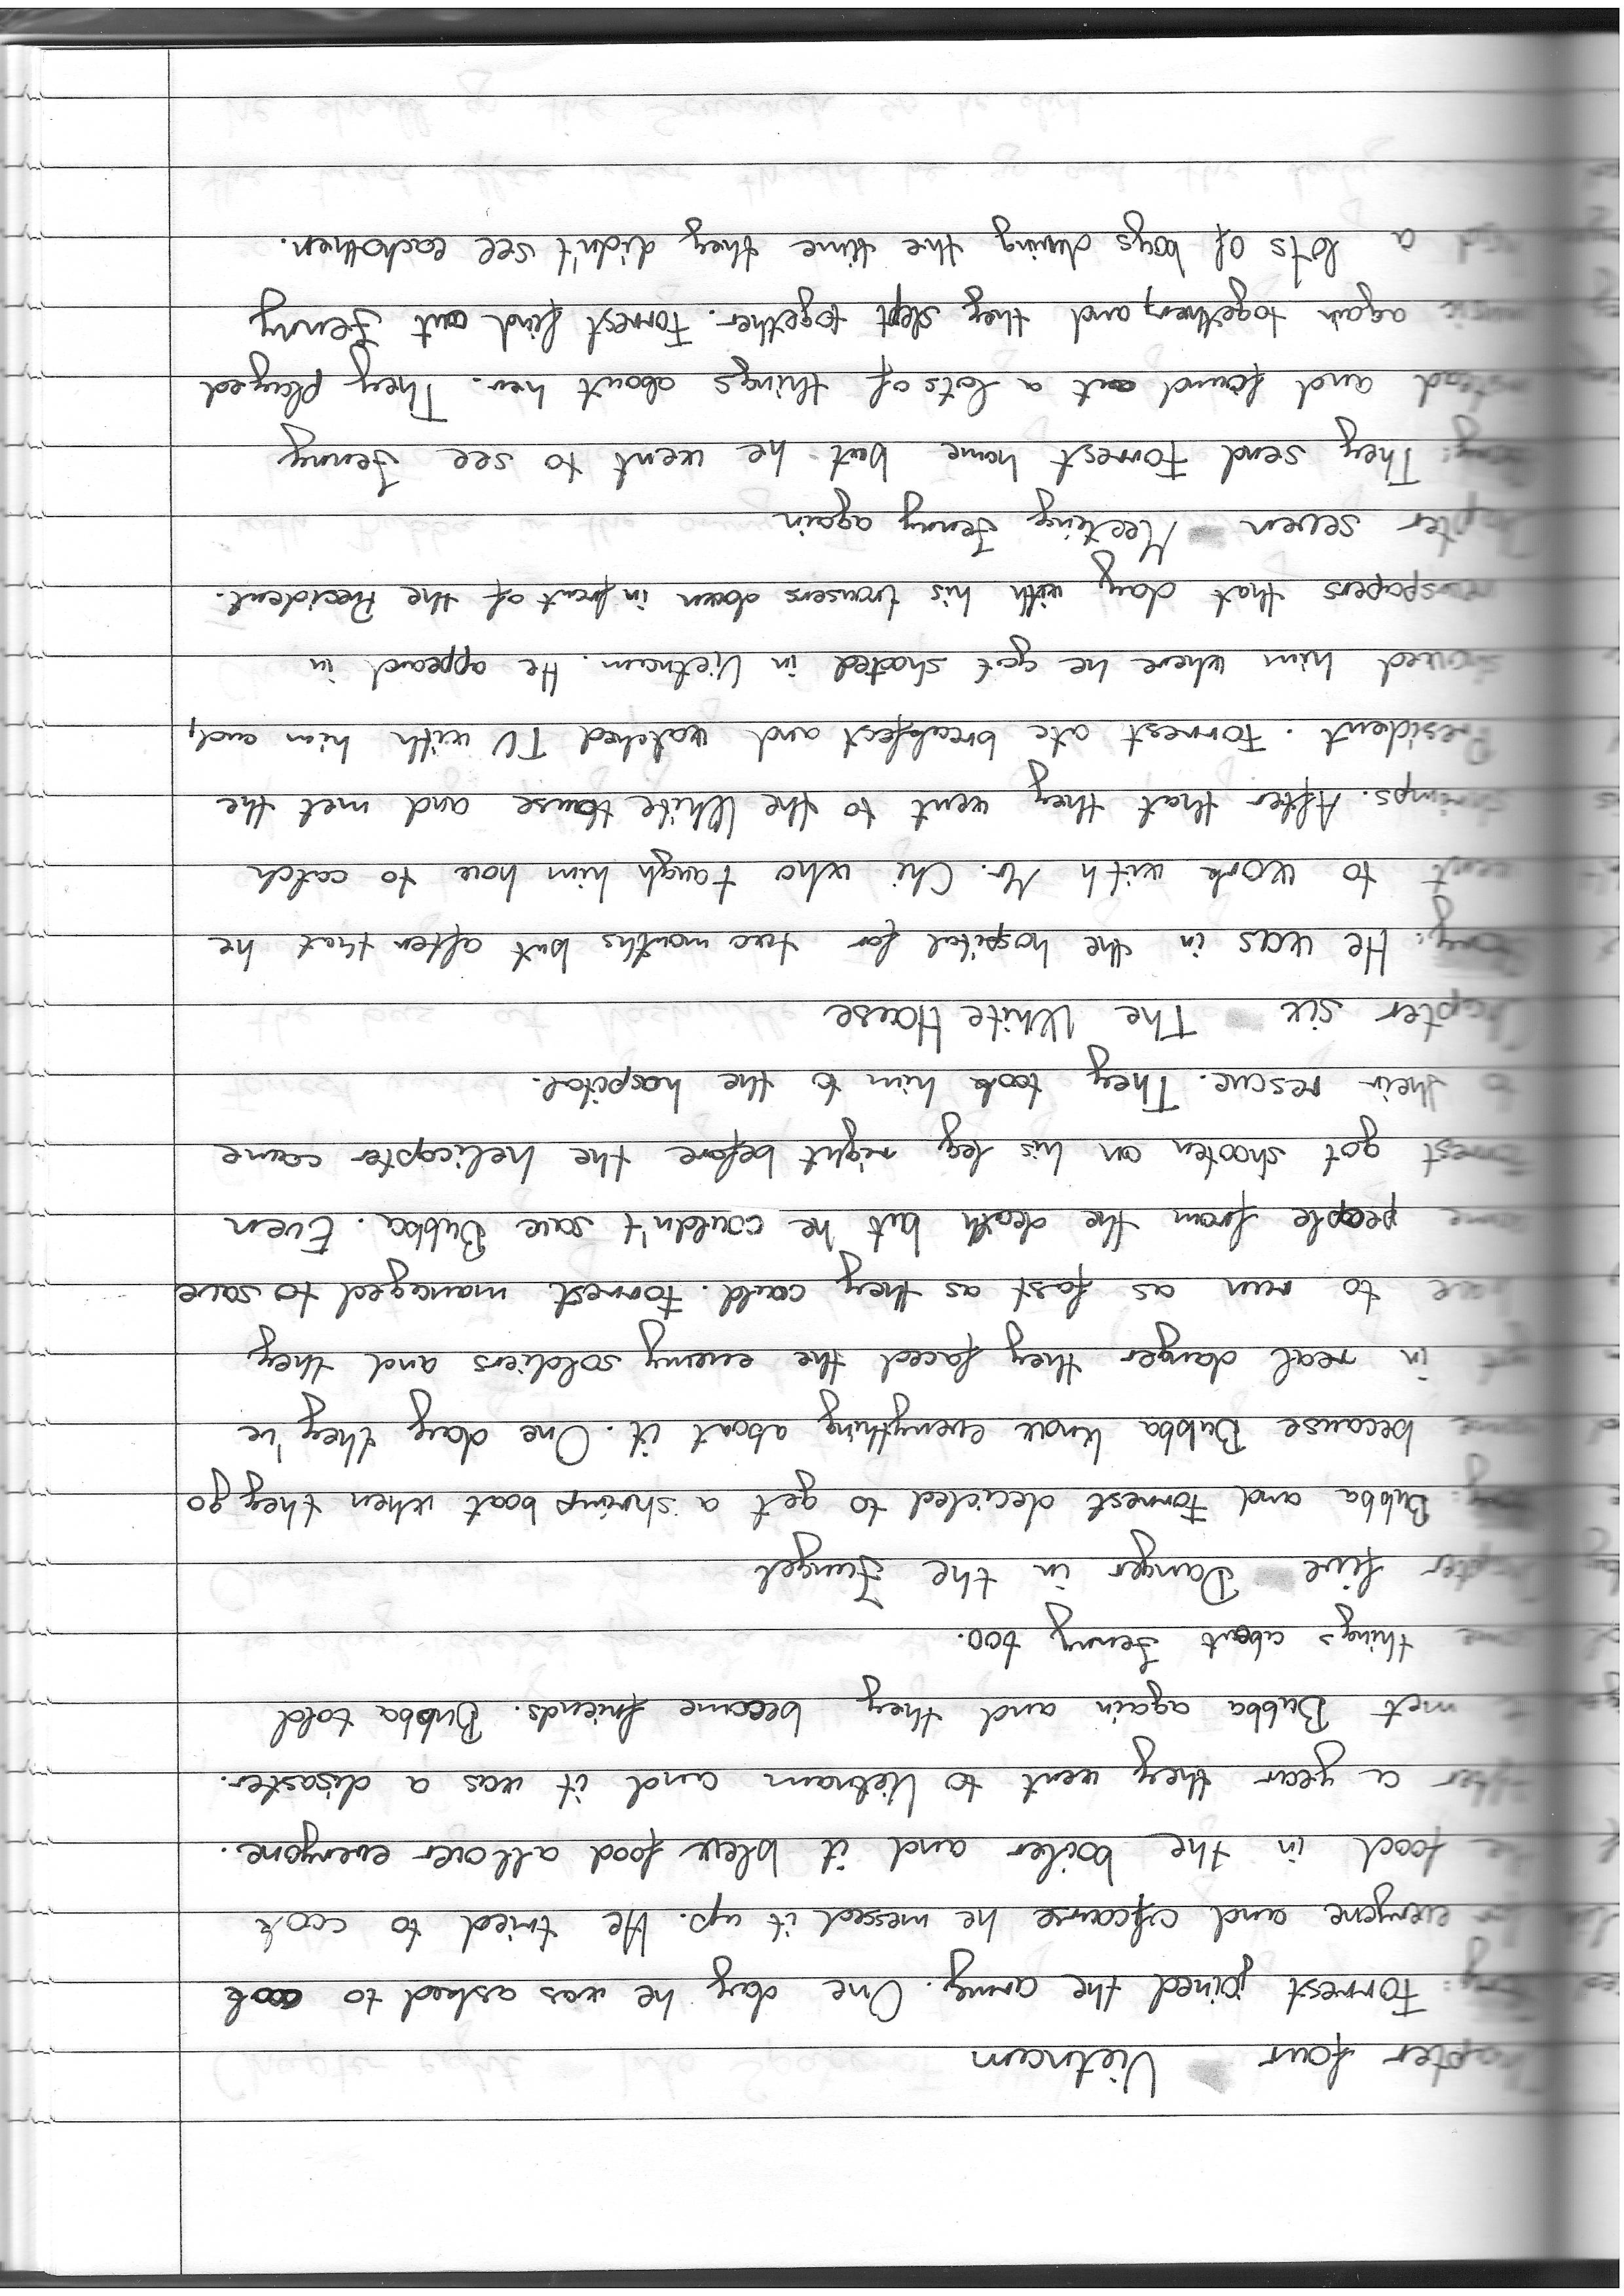 Chapter four Vietnam
Story: Forrest joined the army. One day he was asked to cook
for everyone and ofcourse he messed it up. He tried to cook
the food in the boiler and it blew food all over everyone.
After a year they went to Vietnam and it was a disaster.
He met Bubba again and they became friends. Bubba told
some things about Jenny too.
Chapter five Danger in the Jungel
Story: Bubba and Forrest decided to get a shrimp boat when they go
home because Bubba know everything about it. One day they're
got in real danger they faced the enemy soldiers and they
have to run as fast as they could. Forrest managed to save
some people from the death but he couldn't save Bubba. Even
Forrest got shooten on his leg right before the helicopter came
to their rescue. They took him to the hospital.
Chapter six The White House
Story: He was in the hospital for two months but after that he
went to work with Mr. Chi who taugh him how to catch
shrimps. After that they went to the White House and met the
President. Forrest ate breakfest and watched TV with him and,
showed him where he got shooted in Vietnam. He appeard in
newspapers that day with his trousers down infront of the President.
Chapter seven Meeting Jenny again
Story: They send Forrest home but he went to see Jenny
instead and found out a lots of things about her. They played
music again together, and they slept together. Forrest find out Jenny
had a lots of boys during the time they didn't see eachother.